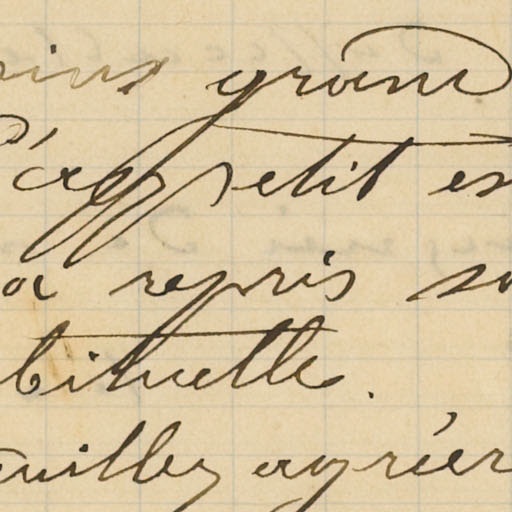 oins grand
l'appetit es
a repris so
bituelle.
euillez agréer